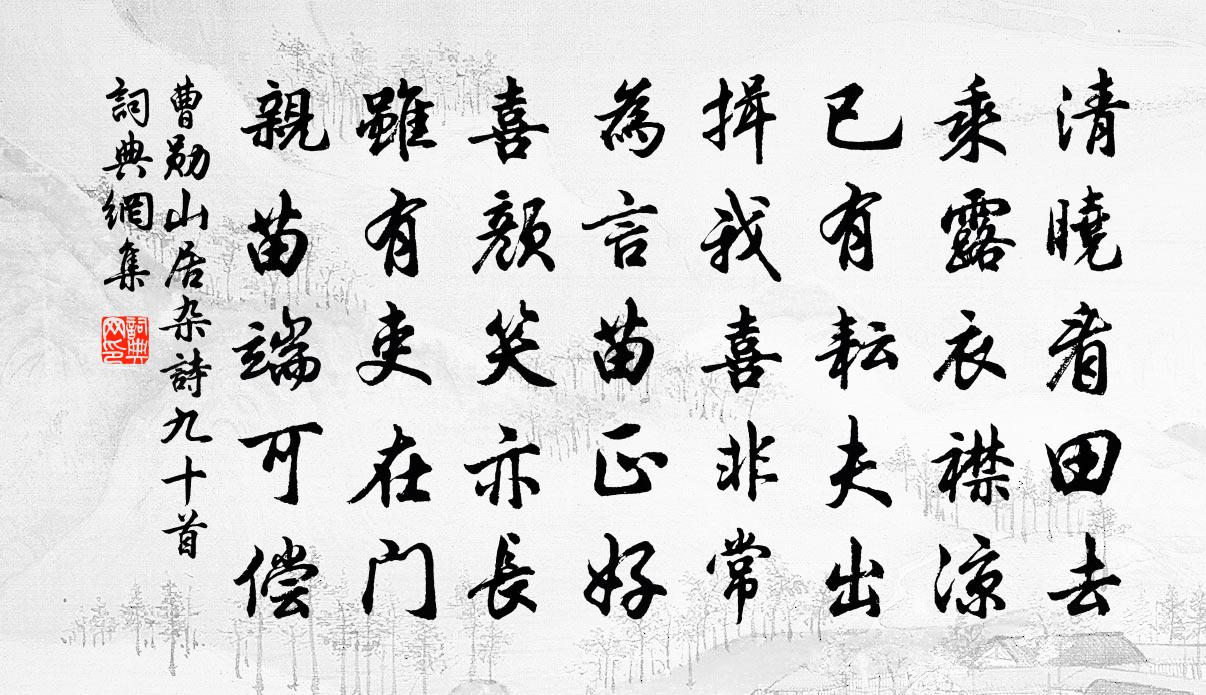 清曉看田去
乘露衣襟涼
已有耘夫出
揖我喜非常
為言苗正好
喜顏笑亦長
雖有吏在門
親苗端可偿
曹勋山居杂詩九十首
詞典網集
詞典
网印